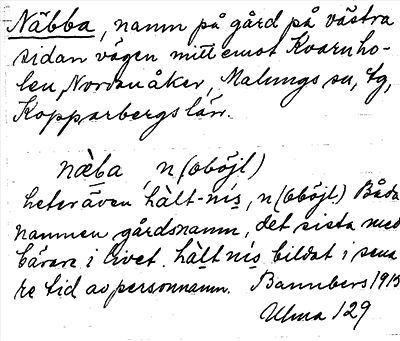 Näbba, namn på gård på västra
sidan vägen mitt emot Kvarnho-
len, Nordanåker, Malungs sn, tg,
Kopparbergs län.
næ̀ba, n (oböjl)
heter även hàlt-nìs, n (oböjl.) Båda
namnen gårdsnamn, det sista med
bärare i livet. hàlt nìs bildat i sena
re tid av personnamn. Bannbers 1915
Ulma 129